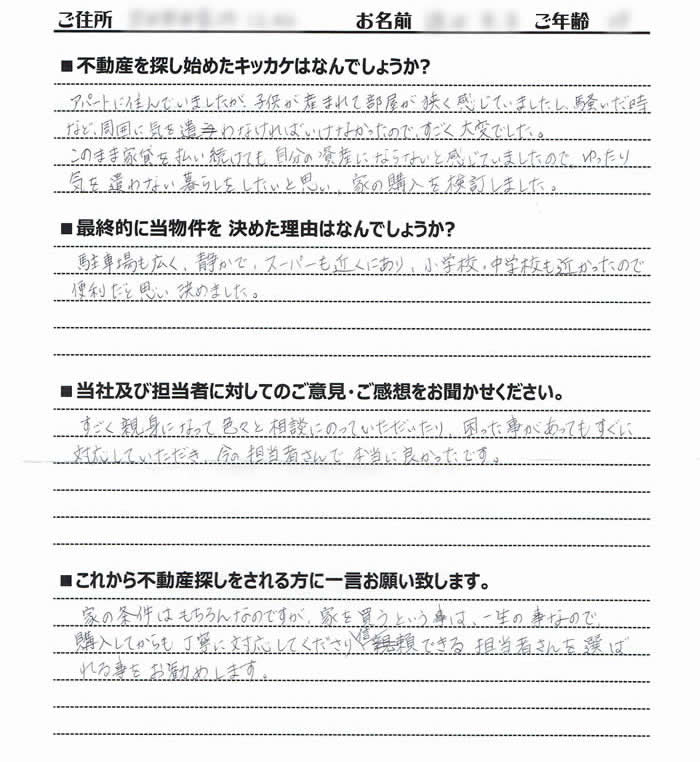 ご住所 お名前 ご年齢
■不動産を探し始めたキッカケはなんでしょうか?
アパートに住んでいましたが、子供が産まれて部屋が狭く感じていましたし、騒いだ時
など、周囲に気を遣わなければいけなかったので、すごく大変でした。
このまま家賃を払い続けても、自分の資産にならないと感じていましたので、ゆったり
気を遣わない暮らしをしたいと思い、家の購入を検討しました。
■最終的に当物件を 決めた理由はなんでしょうか?
駐車場も広く、静かで、スーパーも近くにあり、小学校・中学校も近かったので
便利だと思い決めました。
■当社及び担当者に対してのご意見・ご感想をお聞かせください。
すごく親身になって色々と相談にのっていただいたり、困った事があってもすぐに
対応していただき、今の担当者さんで本当に良かったです。
■これから不動産探しをされる方に一言お願い致します。
家の条件はもちろんなのですが、家を買うという事は、一生の事なので、
購入してからも丁寧に対応してくださり信頼できる担当者さんを選ば
れる事をお勧めします。